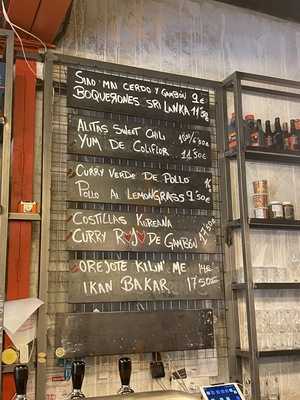 SIAO MAI CERDO Y GAMBÓN 9€
BOQUERONES SRI LANKA 11'50€
ALITAS SWEET CHILI
YUM DE COLIFLOR 11,50€
CURRY VERDE DE POLLO
POLLO AL LEMONGRASS 9'50€
COSTILLAS KOREANA
CURRY ROJO DE GAMBÓN 17'50€
OREJOTE KILIN' ME 14€
IKAN BAKAR 17'50€